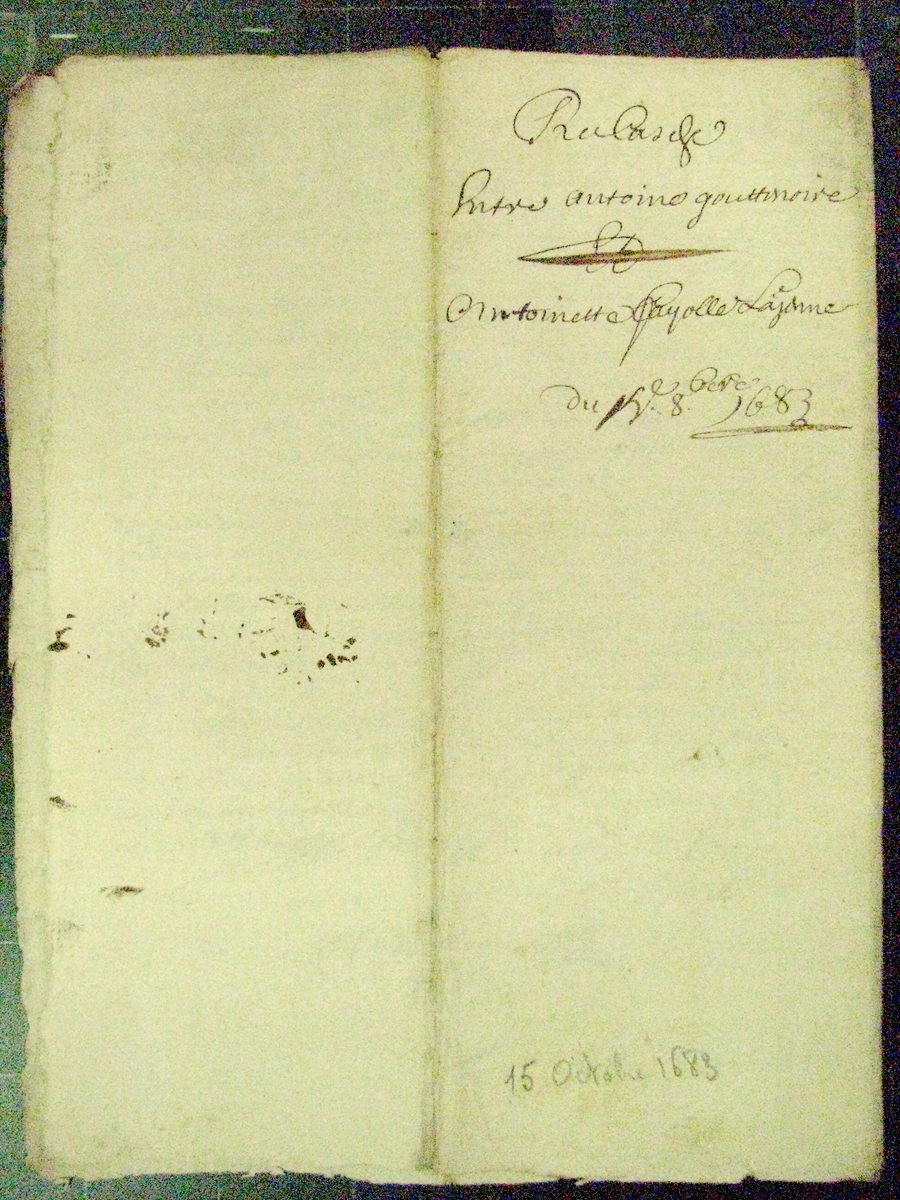 Entre antoine gouttenoire
Et
Antoinette fayolle
du 15e. 8.bre 1683
15 Octobre 1683